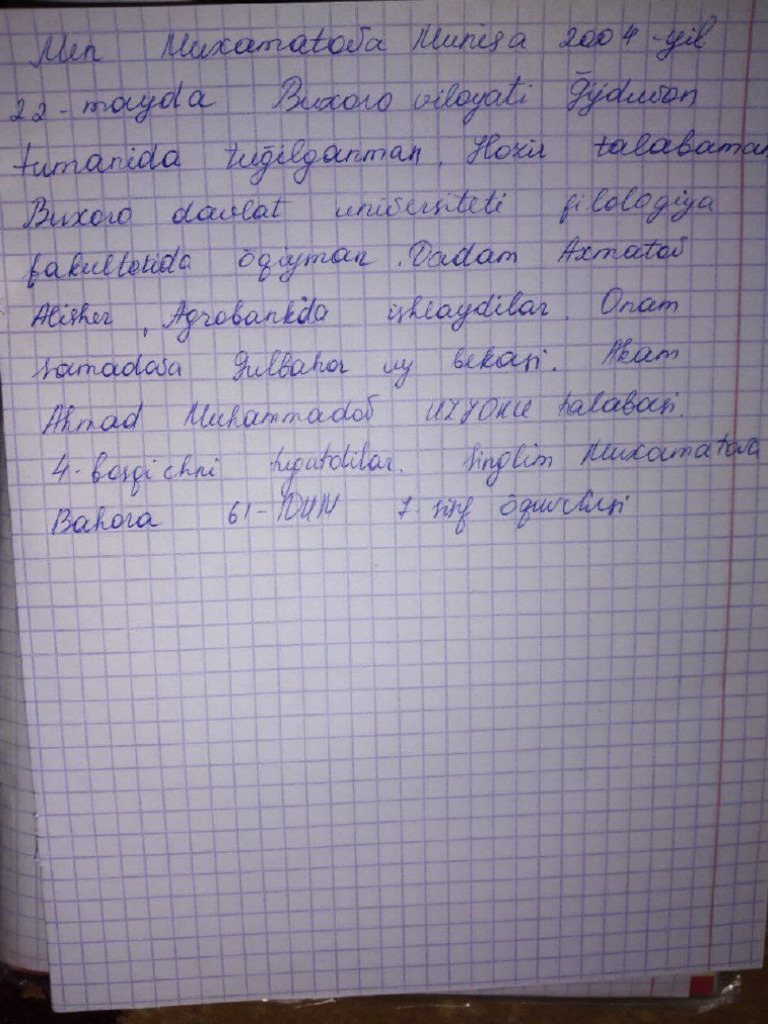 Men Muxamatova Munisa 2004-yil
22-mayda Buxoro viloyati Ğijduvon
tumanida tuğilganman. Hozir talabaman
Buxoro davlat universiteti filologiya
fakultetida õqiyman. Dadam Axmatov
Alisher, Agrobankda ishlaydilar. Onam
Samadova Gulbahor uy bekasi. Akam
Ahmad Muhammadov talabasi.
4-bosqichni tugatdilar. Singlim Muxamatova
Bahora 61-IDUM 7 sinf õquvchisi